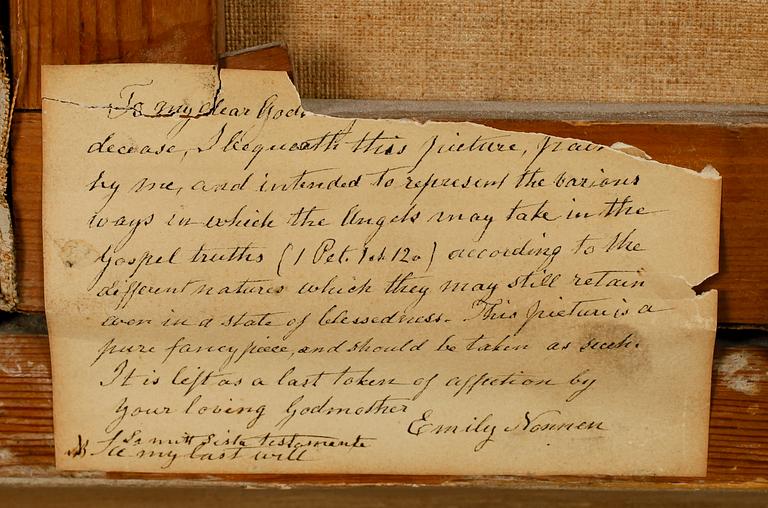 To my dear God
decease, I bequeath this picture, pain
by me, and intended to represent the various
ways in which the Angels may take in the
Gospel truths (1 Pet. 1ch. 12v) according to the
different natures which they may still retain
even in a state of blessedness. This picture is a
pure fancy piece, and should be taken as such.
It is left as a last token of affection by
your loving Godmother
Emily Nonnen
Se mitt sista testamente
See my last will